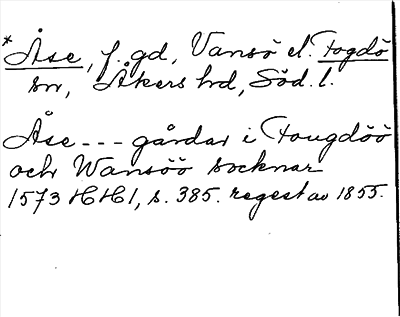 * Åse, f. gd, Vansö el. Fogdö
sn, Åkers hd, Söd. l.
Åse --- gårdar i Fougdöö
och Wansöö socknar
1573 HH 1, s. 385. regest av 1855.